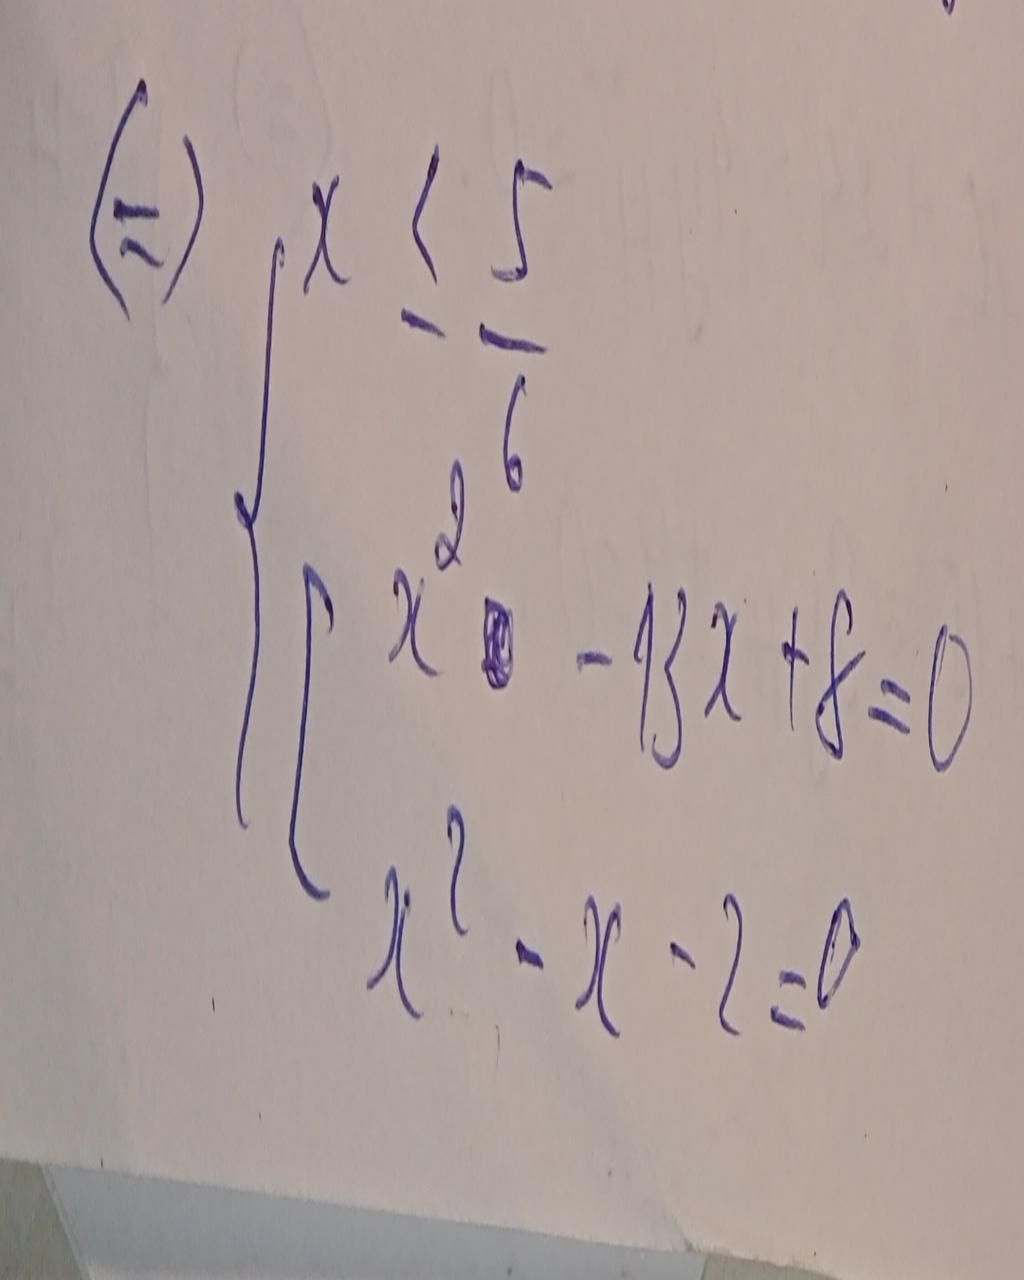 (=) { x ≤ 5/6
[ x² - 13x + 8 = 0
x² - x - 2 = 0